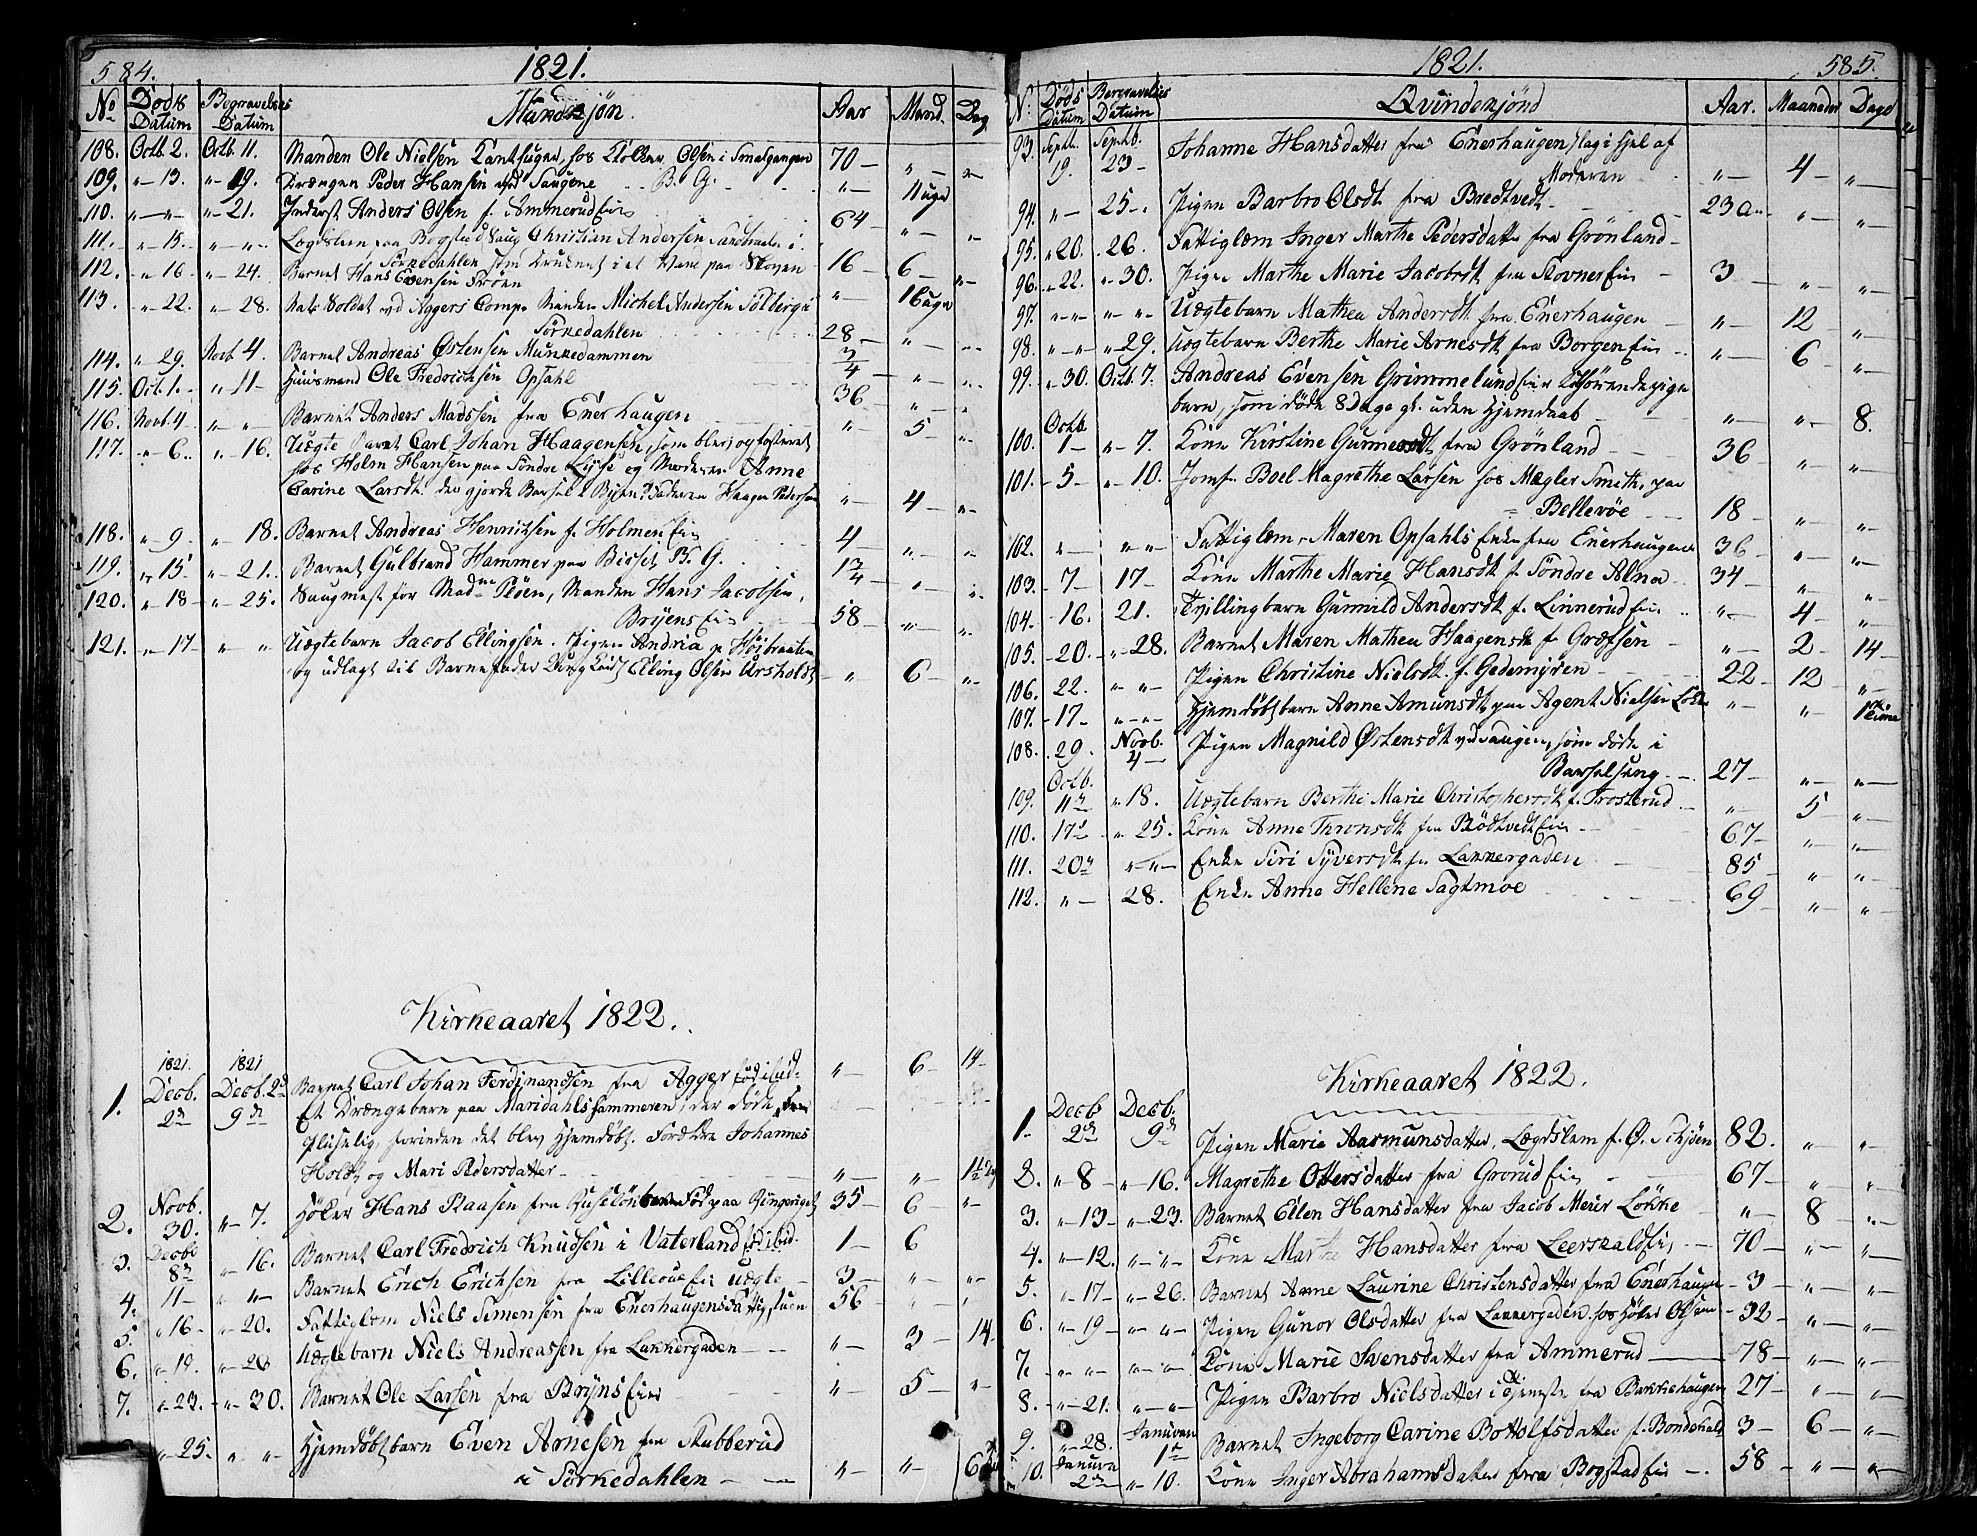 584. 1821.
No Døds Datum Begravelses Datum Mandkjøn. Aar Maaned. Dag
108. Octb. 2. Octb. 11. Manden Ole Nielsen hos Olsen i Smalgangen 70 — " — " —
109. " — 13. " 19. Drængen Peder Hansen ved Saugene B. G. " — 11 uger
110. " — " — " — 21. Inderst Anders Olsen f. AmmerudEie 64 — " — " —
111. " — 15. " — " — Lægdslem fra Bogstad Saug Christian Andersen i
Sørkedahlen som druknet i et Vand paa Skoven 16 — 6 — " —
112. " — 16 — " — 24. Barnet Hans Evensen Troen " — 16 uger
113. " — 22. " — 28. Nat: Soldat ved Aggers Comp. Manden Michel Andersen Solberg i
Sørkedahlen 28 — " — " —
114. " 29. Novb. 4. Barnet Andreas Østensen Munkedammen 3/4 — " — " —
115. Oct. 1. " 11 — Huusmand Ole Fredrichsen Opsahl 36 — " — "
116. Novb. 4 — " — " — Barnet Anders Madssen fra Enerhaugen " — 5 — " —
117. " — 6 — " — 16. Uægte Barnet Carl Johan Haagensen, som blev opfostret
hos Holm Hansen paa Søndre og Moderen Anne
Carine Larsdt. der gjorde Barsel i Byen? Faderen Haagen Pedersen " — 4 — " —
118. " 9 — " — 18. Barnet Andreas Henrichsen f. HolmenEie 4 — " — "
119. " — 15 — " — 21. Barnet Gulbrand Hammer paa B. G. 1 3/4 — " — "
120. " — 18 — " — 25. Saugmest for Madme Pløen, Manden Hans Jacobsen,
BrynsEie 58 — " — " —
121. " — 17 — " " Uægtebarn Jacob Ellingsen. Pigen Andria p. Høibraaten
og udlagt til Barnefader Elling Olsen Aarsholdt " 6 — " —
Kirkeaaret 1822.
1821. 1821
1. Decb. 2d Decb. 2d 9de Barnet Carl Johan Ferdinandsen fra Agger født i " — 6 — 14 —
Et Drængebarn paa Maridahlshammeren, der døde
pludselig, forinden det blev Hjemdøbt. Forældre Johannes
Holdt og Mari Pedersdatter — " — " — 1½ Dag
2. Novb. 30. " — 7. Høker Hans Raasen fra Ruseløkken Fød paa Ringeriget 35 — 6 — " —
3. Decb. 8d " — 16. Barnet Carl Fredrich Knudsen i Vaterland 1 — 6
4. 11 — " " Barnet Erich Erichsen fra Eie Uægte 3 — " — " —
5. " 16 — " — 20. Fattiglem Niels Simensen fra Enerhaugens Fattigstuen 56 — " —
6. " 19. " — 26 Uægtebarn Niels Andreassen fra Lakkergaden " — 3 — 14.
7. " — 23. " — 30. Barnet Ole Larsen fra BrynsEie " — 5 — " —
" — 25. " " Hjemdøbt barn Even Arnesen fra Stubberud
i Sørkedahlen " — " — 6
1821. 585.
No. Døds Datum Begravelses Datum Qvindekjønd Aar. Maaneder Dage
93. Septb. 19. Septb. 23 — Johanne Hansdatter fra Enerhaugen, slag ihjel af
Moderen " — 4 — " —
94. " — 25 — Pigen Barbro Olsdt. fra Bredtvedt — 23a — " — "
95. " 20. . 26. Fattiglem Inger Marthe Pedersdatter fra Grønland —
96. " 22. " 30. Pigen Marthe Marie Jacobsdt. fra StovnerEie 3 — " — " —
97. " — " — " — " — Uægtebarn Mathea Andersdt. fra Enerhaugen " — 12 — " —
98. " — " — " 29. Uægtebarn Berthe Marie Arnesdt. fra BorgenEie " — 6 — " —
99. " 30. Octb. 7. Andreas Evensen GrimmelundEie pige
barn, som døde 8 Dage gl. uden Hjemdaab — " — " — 8.
100. Octb. 1 — " 7. Kone Kirstine Gunnersdt. fra Grønland — 36 — " — " —
101. — 5 — " — 10. Jomf. Boel Magrethe Larsen hos Mægler Smith, paa
Bellevøe 18 — " — " —
102. " — " " Fattiglem. Maren Opsahls Enke fra Enerhaugen 36 — " — " —
103. — 7 — 17 — Kone Marthe Marie Hansdt. f. Søndre Alna 34 — " — "
104. — 16. 21. Tvillingbarn Gunnild Andersdt. f. LinnerudEie " — 4 — "
105. — 20. — " 28. Barnet Maren Mathea Haagensdt. f. Grefsen " — 2 — 14 —
106. 22. " — " — Pigen Christine Nielsdt. f. Gedemyren — 22 — 12 — " —
107. — 17 — " — " — Hjemdøbt barn Anne Amunsdt. paa Agent Nielsen Løkke " — " 1 Time
108. . 29. Novb. 4 — Pigen Magnild Østensdt. ved Saugene, som døde i
Barselseng — 27 — " — " —
109. Octb. 11d " 18. Uægtebarn Berthe Marie Christophersdt. f. Trosterud " — 5 — " —
110. 17d — " 25. Kone Anne Thronsdt. fra RødtvedtEie — 67 — " — " —
111. 20d " — " — Enke Siri Syversdt. f. Lakkergaden 85 — " — " —
112. " — 28. Enke Anne Hellene Sagtmoe 69 — " — " —
Kirkeaaret 1822.
1. Decb 2d Decb. 9d Pigen Marie Aasmunsdatter, Lægdslem f. Ø. 82. " " —
2. " 8 — " 16. Magrethe Ottersdatter fra GrorudEie 67 — " "
3. " 13 — " 23. Barnet Ellen Hansdatter fra Jacob Meier Løkke — " — 8 — " —
4. " — 12. " — " — Kone Marthe Hansdatter fra Eie — 70 — " — " —
5. " 17 — " 26. Barnet Anne Laurine Christensdatter fra Enerhaugen — 3 — " — "
6. " — 19 — " — " — Pigen Gunor Olsdatter fra Lakkergaden hos Høker Olsen — 32 — " — "
7. " — " — " — " — Kone Marie Svensdatter fra Ammerud — 78 — " — " —
8. — " 21. " — " — Pigen Barbro Nielsdatter i tjeneste fra Bakkehaugen 27 — " — " —
9. " — 28. Januari 1te Barnet Ingeborg Carine Bottolfsdatter f. 3 — 6 — " —
10. Januar 2den " 10. Kone Inger Abrahamsdatter fra BogstadEie — 58 — " — " —